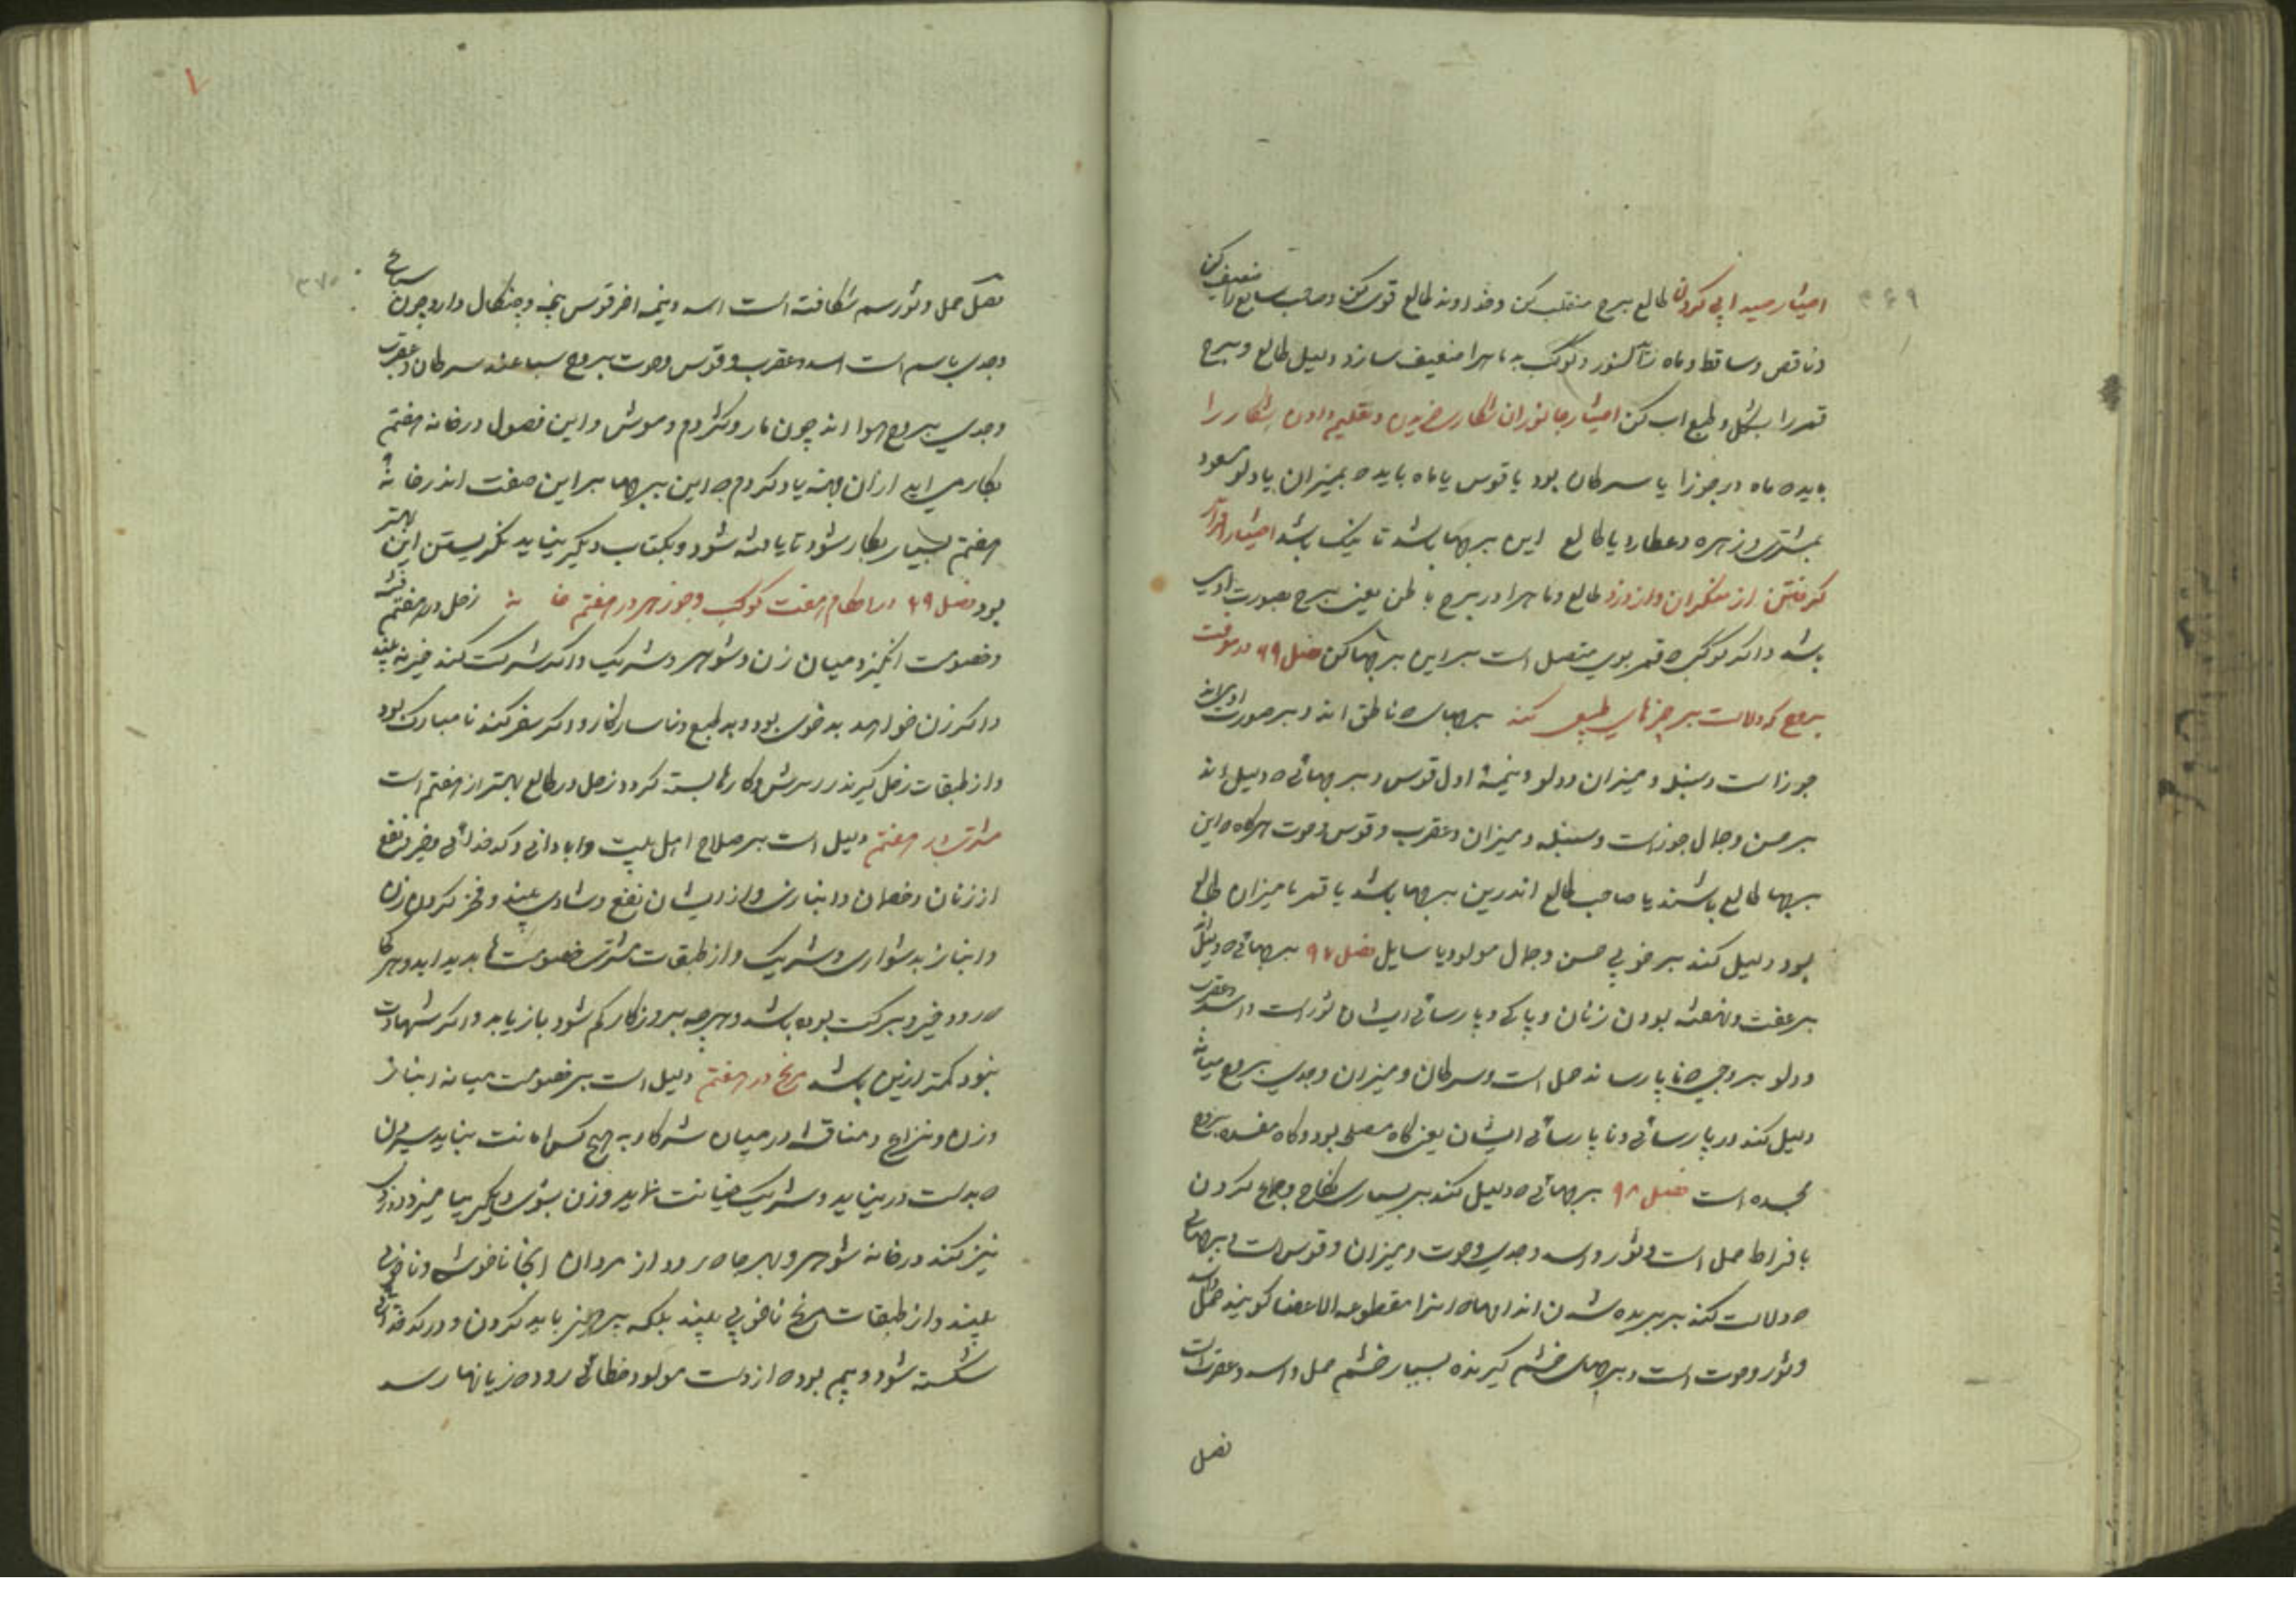 ۳۶۹
اختیار صید ابی کردن طالع برج منقلب کن وخداوند طالع قوی کن وصاحب سابع را ضعیف کن
وناقص وساقط وماه زائد النور وکوکب به ما هرا ضعیف سازد دلیل طالع وبرج
قمر را بشکل و طبع اب کن اختیار جانوران شکاری خریدن وتعلیم دادن شکار را
باید ه ماه در جوزا یا سرطان بود یا قوس یا ماه باید ه بمیزان یا دلو مسعود
بمشتری وزهره وعطارد یا طالع این برجها باشد تا نیک باشد اختیار اقرار
کرفتن از منکران واز دزد طالع وماهرا در برج ناطق یعنی برج بصورت ادمی
باشد واکر کوکب ه قمر بوی متصل است براین برجها کن فصل ۹۶ در معرفت
بروج که دلالت بر چیزهای طبیعی کنند برجهای ه ناطق اند وبر صورت ادمی اند
جوزا است وسنبله ومیزان ودلو ونیمۀ اول قوس وبرجهائی ه دلیل اند
بر حسن وجمال جوزاست وسنبله ومیزان وعقرب وقوس وحوت هرکاه ه این
برجها طالع باشند یا صاحب طالع اندرین برجها باشد یا قمر با میزان طالع
بود دلیل کند بر خوبی حسن وجمال مولود یا سایل فصل ۹۷ برجهائی ه دلیل اند
بر عفت ونهفته بودن زنان وپاکی وپارسائی ایشان ثور است واسد وعقرب
ودلو بروجی ه ناپارسا ند حمل است وسرطان ومیزان وجدی بروج میانه
دلیل کند در پارسائی وناپارسائی ایشان یعنی کاه مصلح بود وکاه مفسد بروج
مجسده است فصل ۹۸ برجهائی ه دلیل کند بر بسیاری نکاح وجماع کردن
بافراط حمل است وثور واسد وجدی وحوت ومیزان وقوس است وبرجهائی
ه دلالت کند بر بریده شدن اندامها ه انرا مقطوعه الاعضا کویند حمل واسد
وثور وحوت است وبرجهای خشم کیرنده بسیار خشم حمل واسد وعقرب است
فصل
۳۷۰
فصل حمل وثور سم شکافته است اسد ونیمه اخر قوس پنجه وچنکال دارد چون سباع
وجدی باسم است اسد وعقرب وقوس وحوت بروج سباعند سرطان وعقرب
وجدی بروج هوا اند چون مار وکژدم وموش واین فصول در خانه هفتم
بکار می اید از ان جهة یاد کردم ه این برجها براین صفت اندر خانۀ
هفتم بسیار بکار شود تا یافته شود وبکتاب دیکر نباید نکریستن این بهتر
بود فصل ۹۹ در احکام هفت کوکب وجوزهر در هفتم خانه زحل در هفتم فتنه
وخصومت انکیزد میان زن وشوهر وشریک واکر شرکت کند خیر نه بیند
واکر زن خواهد بد خوی بود وبد طبع وناسازکار واکر سفر کند نا مبارک بود
واز طبقات زحل کیرند در سرش وکارها بسته کردد زحل در طالع بهتر از هفتم است
مشتری در هفتم دلیل است بر صلاح اهل بیت وابادانی وکدخدائی وخیر ونفع
از زنان وخصمان وانبازی واز ایشان نفع وشادی بیند وفخر کردن بزن
وانباز بدشواری وشریک واز طبقات مشتری خصومت ها بدید اید وهر کجا
ه رود خیر وبرکت بوده باشد وهرچه بروزکار کم شود باز یابد واکر شهادت
نبود کمتر ازین باشد مریخ در هفتم دلیل است بر خصومت میانه انباز
وزن ونزاع ومناقشه در میان شرکا وبه هیچ کس امانت نباید سپردن
ه بدست در نیاید وشریک خیانت نماید وزن بسوی دیکر بیامیزد ودزدی
نیز کند در خانه شوهر وبهر جا ه رود از مردان انجا ناخوشی وناخوبی
بیند واز طبقات مریخ ناخوبی بیند بلکه پرهیز باید کردن ودر کدخدائی
شکسته شود وبیم بود ه از دست مولود خطائی رود ه زیانها رسد